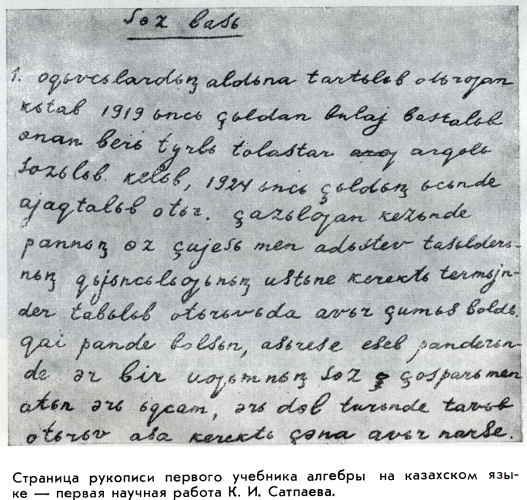 søz basь
1. oqьvcьlardьꞑ aldьna tartьlьb otьrƣan
kitab 1919 ьncь çьldan bulaj bastalьb
onan beri tyrli tolastar arqьlь
sozьlьb kelib, 1924 ьnci çьldьꞑ icinde
ajaqtalьb otьr. çazьlƣan kezinde
pannьꞑ øz çyjesi men adistev tasilderi-
niꞑ qьjьncьlьƣьnьꞑ ystine kerekti termijn-
der tabьlьb otьrьvьda avьr çumьs boldь.
qai pande bolsьn, asirese eseb panderin-
de ər bir uƣьmnьꞑ søz çosparь men
atьn əri ьqcam, əri dəl tyrinde tavьb
otьrьv asa kerekti çəna avьr nərse.
Страница рукописи первого учебника алгебры на казахском язы-
ке — первая научная работа К. И. Сатпаева.